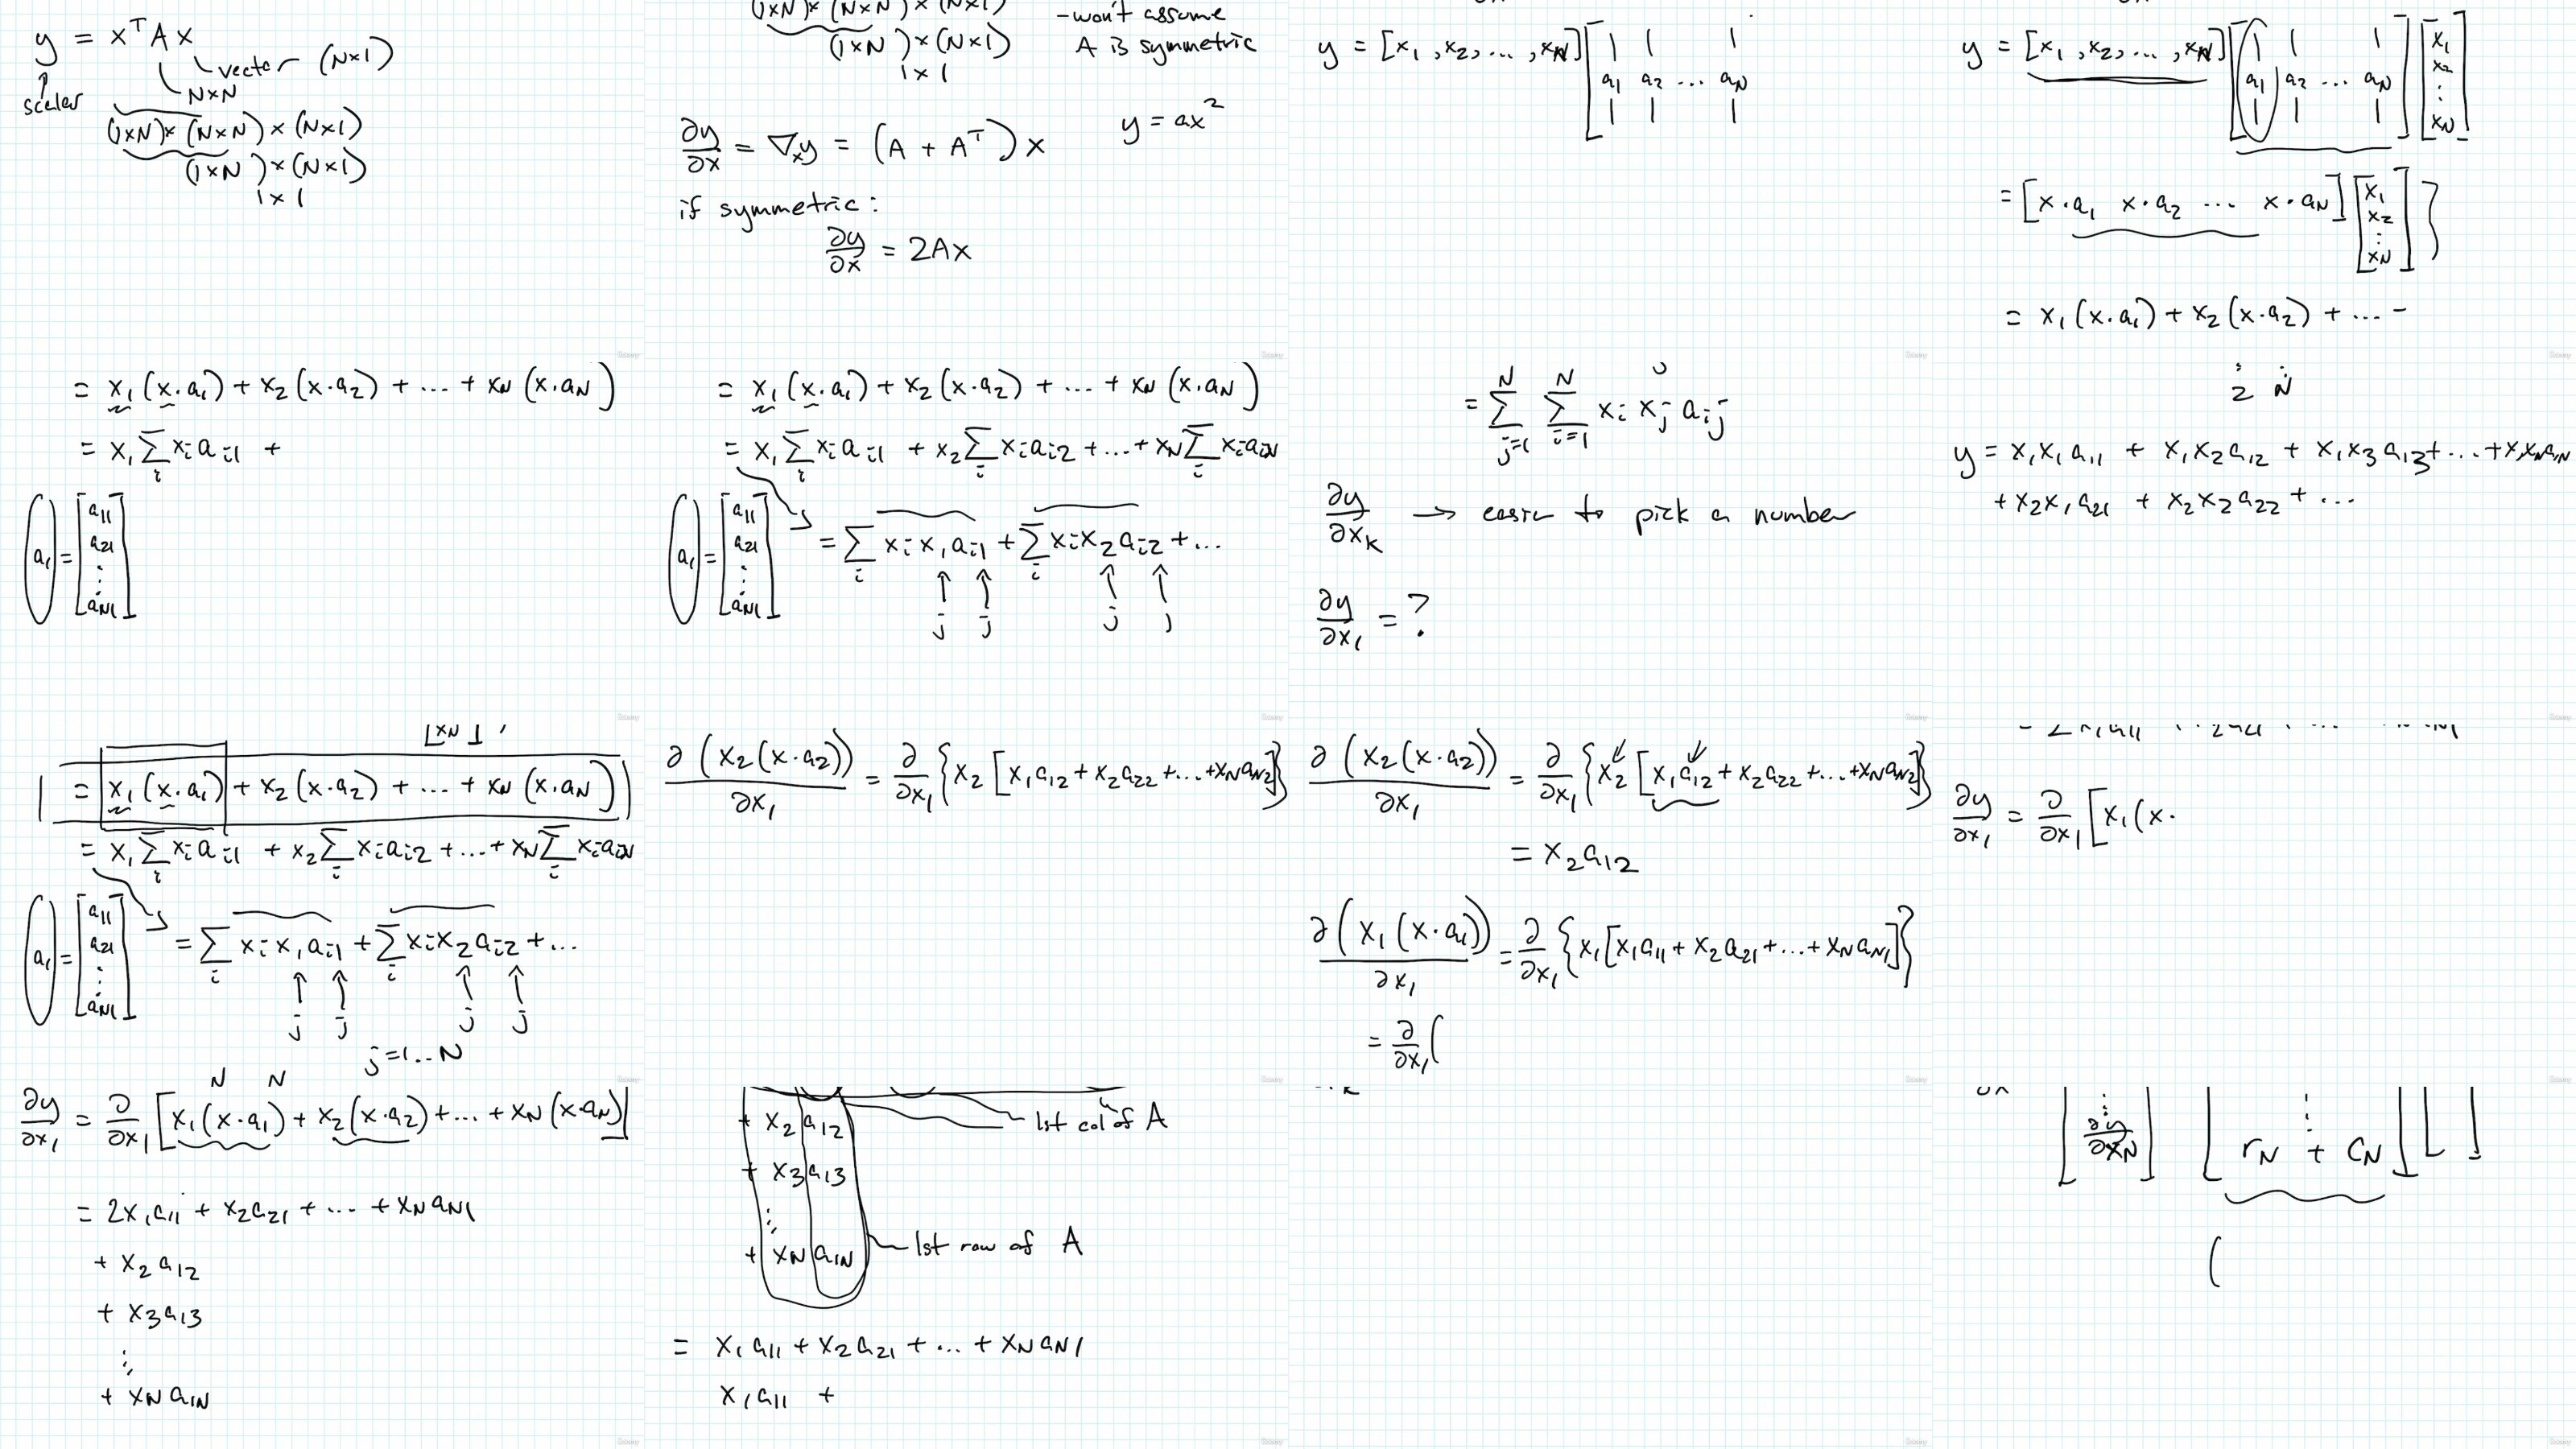 y = xᵀAx
vector (N×1)
N×N
scalar
(1×N)×(N×N)×(N×1)
(1×N)×(N×1)
1×1
(1×N)×(N×N)×(N×1)
(1×N)×(N×1)
1×1
-won't assume
A is symmetric
∂y/∂x = ∇ₓy = (A + Aᵀ)x
y = ax²
if symmetric:
∂y/∂x = 2Ax
y = [x₁, x₂, ..., x_N] [a₁ a₂ ... a_N]
y = [x₁, x₂, ..., x_N] [a₁ a₂ ... a_N] [x₁ x₂ ⋮ x_N]
= [x·a₁ x·a₂ ... x·a_N] [x₁ x₂ ⋮ x_N]
= x₁(x·a₁) + x₂(x·a₂) + ...
= x₁(x·a₁) + x₂(x·a₂) + ... + x_N(x·a_N)
= x₁ Σᵢ xᵢaᵢ₁ +
a₁ = [a₁₁ a₂₁ ⋮ a_N1]
= x₁(x·a₁) + x₂(x·a₂) + ... + x_N(x·a_N)
= x₁ Σᵢ xᵢaᵢ₁ + x₂ Σᵢ xᵢaᵢ₂ + ... + x_N Σᵢ xᵢa_iN
a₁ = [a₁₁ a₂₁ ⋮ a_N1]
= Σᵢ xᵢx₁aᵢ₁ + Σᵢ xᵢx₂aᵢ₂ + ...
j j j j
= Σ_{j=1}^N Σ_{i=1}^N xᵢ xⱼ aᵢⱼ
∂y/∂x_k → easier to pick a number
∂y/∂x₁ = ?
2 N
y = x₁x₁a₁₁ + x₁x₂a₁₂ + x₁x₃a₁₃ + ... + x₁x_Na_1N
+ x₂x₁a₂₁ + x₂x₂a₂₂ + ...
[x_N]
= x₁(x·a₁) + x₂(x·a₂) + ... + x_N(x·a_N)
= x₁ Σᵢ xᵢaᵢ₁ + x₂ Σᵢ xᵢaᵢ₂ + ... + x_N Σᵢ xᵢa_iN
a₁ = [a₁₁ a₂₁ ⋮ a_N1]
= Σᵢ xᵢx₁aᵢ₁ + Σᵢ xᵢx₂aᵢ₂ + ...
j j j j
j=1...N
∂(x₂(x·a₂))/∂x₁ = ∂/∂x₁ {x₂[x₁a₁₂ + x₂a₂₂ + ... + x_Na_N2]}
∂(x₂(x·a₂))/∂x₁ = ∂/∂x₁ {x₂[x₁a₁₂ + x₂a₂₂ + ... + x_Na_N2]}
= x₂a₁₂
∂(x₁(x·a₁))/∂x₁ = ∂/∂x₁ {x₁[x₁a₁₁ + x₂a₂₁ + ... + x_Na_N1]}
= ∂/∂x₁ (
∂y/∂x₁ = ∂/∂x₁ [x₁(x·
N N
∂y/∂x₁ = ∂/∂x₁ [x₁(x·a₁) + x₂(x·a₂) + ... + x_N(x·a_N)]
= 2x₁a₁₁ + x₂a₂₁ + ... + x_Na_N1
+ x₂a₁₂
+ x₃a₁₃
⋮
+ x_Na_1N
+ x₂a₁₂
1st col of A
+ x₃a₁₃
⋮
+ x_Na_1N
1st row of A
= x₁a₁₁ + x₂a₂₁ + ... + x_Na_N1
x₁a₁₁ +
⋮ ∂y/∂x_N
⋮ r_N + c_N
(